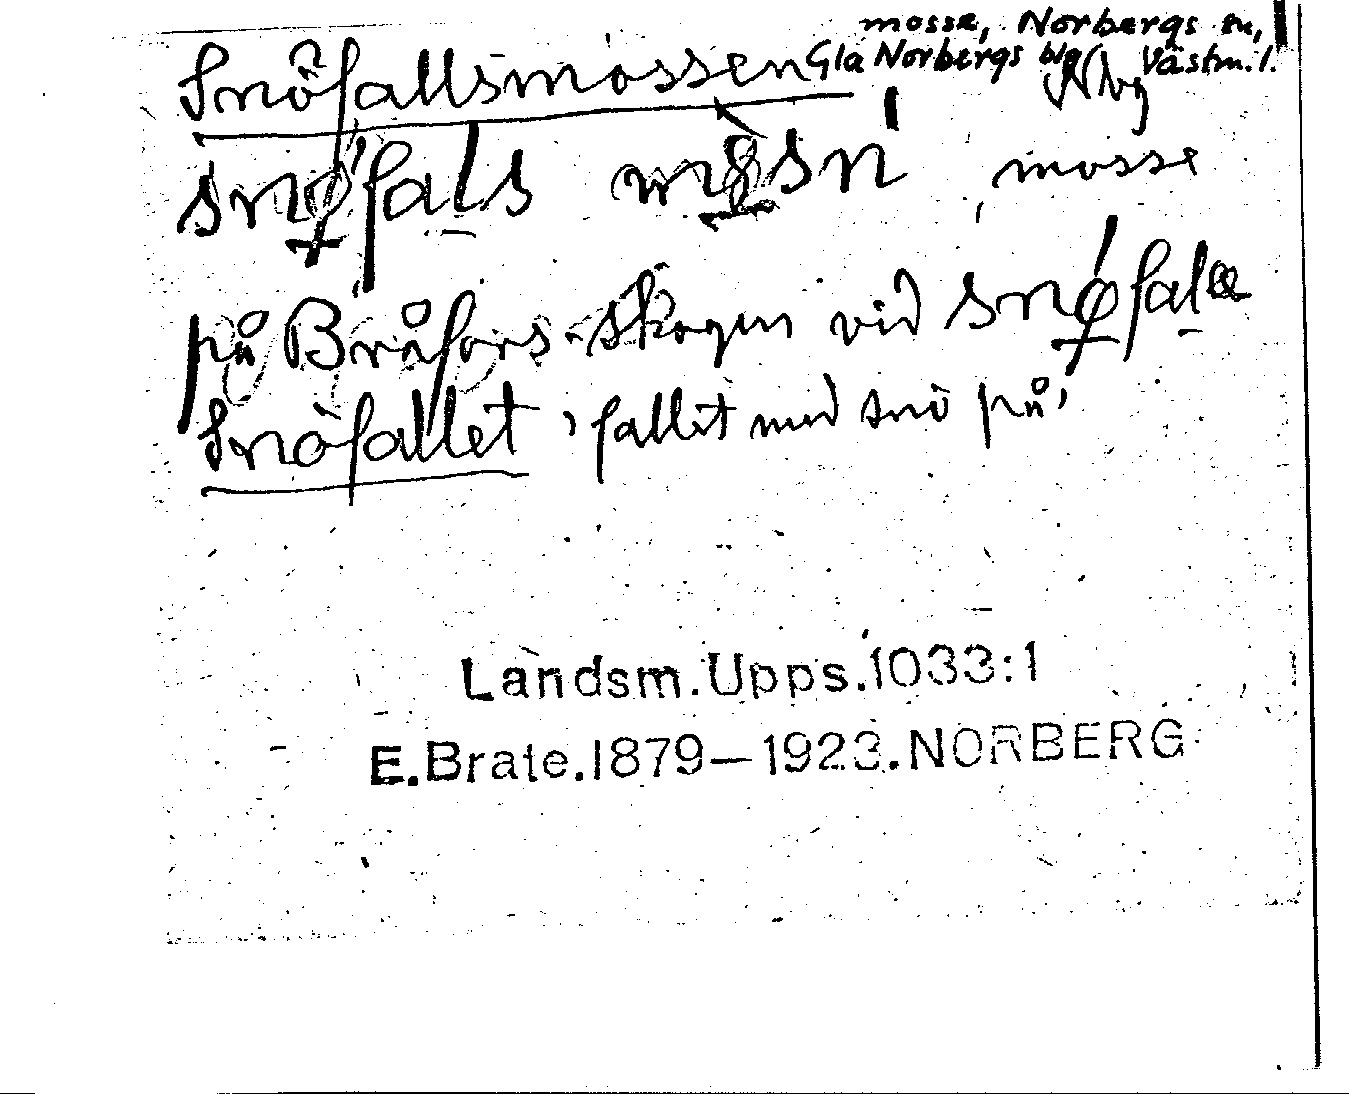 mosse, Norbergs sn,
Snöfallsmossen Gla Norbergs blg Västm. l.
mosse
på Bråfors-skogen vid
Snöfallet 'fallit med snö på'
Landsm.Upps.1033:1
E.Brate.1879-1923.NORBERG